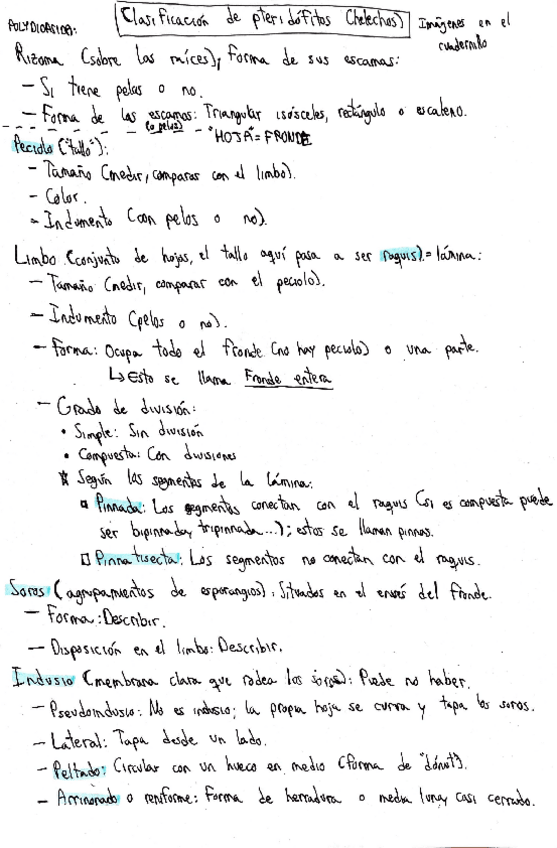 POLYDIOPSIDA:
Clasificación de pteridófitos (helechos)
Imágenes en el cuadernillo
Rizoma (sobre las raíces); Forma de sus escamas:
- Si tiene pelos o no.
- Forma de las escamas: Triangular isósceles, rectángulo o escaleno.
(o pelos)
"HOJA" = FRONDE
Pecíolo ("tallo"):
- Tamaño (medir, comparar con el limbo).
- Color.
- Indumento (con pelos o no).
Limbo (conjunto de hojas, el tallo aquí pasa a ser raquis). = lámina:
- Tamaño (medir, comparar con el pecíolo).
- Indumento (pelos o no).
- Forma: Ocupa todo el fronde (no hay pecíolo) o una parte.
↳ Esto se llama Fronde entera
- Grado de división:
• Simple: Sin división
• Compuesta: Con divisiones
* Según los segmentos de la lámina:
□ Pinnada: Los segmentos conectan con el raquis (si es compuesta puede
ser bipinnada, tripinnada...); estos se llaman pinnas.
□ Pinnatisecta: Los segmentos no conectan con el raquis.
Soros (agrupamientos de esporangios). Situados en el envés del fronde.
- Forma: Describir.
- Disposición en el limbo: Describir.
Indusio (membrana clara que rodea los soros): Puede no haber.
- Pseudoindusio: No es indusio; la propia hoja se curva y tapa los soros.
- Lateral: Tapa desde un lado.
- Peltado: Circular con un hueco en medio (forma de "dónut").
- Arriñonado o reniforme: Forma de herradura o media luna, casi cerrado.